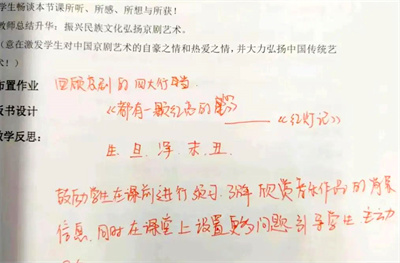 学生畅谈本节课所听、所感、所想与所获！
教师总结升华：振兴民族文化弘扬京剧艺术。
（意在激发学生对中国京剧艺术的自豪之情和热爱之情，并大力弘扬中国传统艺
术！）
布置作业 回顾京剧的四大行当
板书设计 《都有一颗红亮的心》——《红灯记》
教学反思：
生、旦、净、末、丑
鼓励学生在课前进行预习，了解欣赏音乐作品的背景
信息，同时在课堂上设置更多问题，引导学生主动